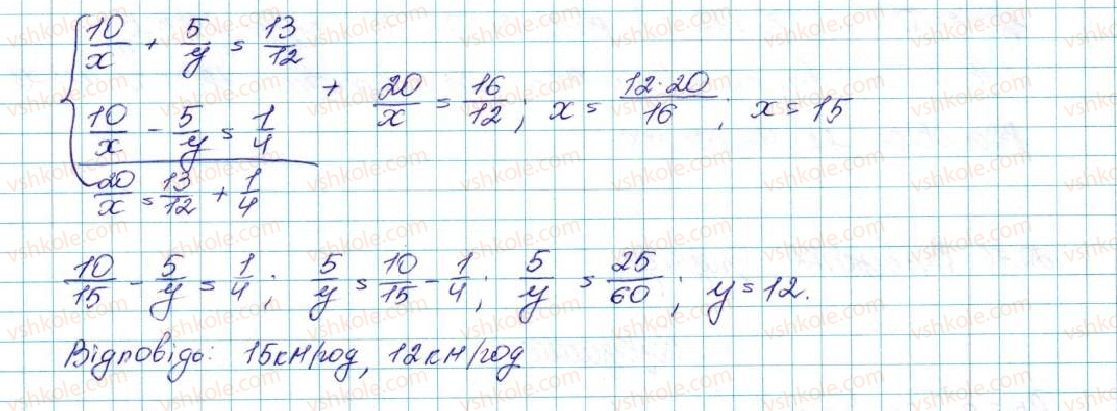 10/x + 5/y = 13/12
10/x - 5/y = 1/4
+ 20/x = 16/12; x = 12·20/16; x = 15
20/x = 13/12 + 1/4
10/15 - 5/y = 1/4; 5/y = 10/15 - 1/4; 5/y = 25/60; y = 12.
Відповідь: 15км/год, 12км/год
vshkole.com